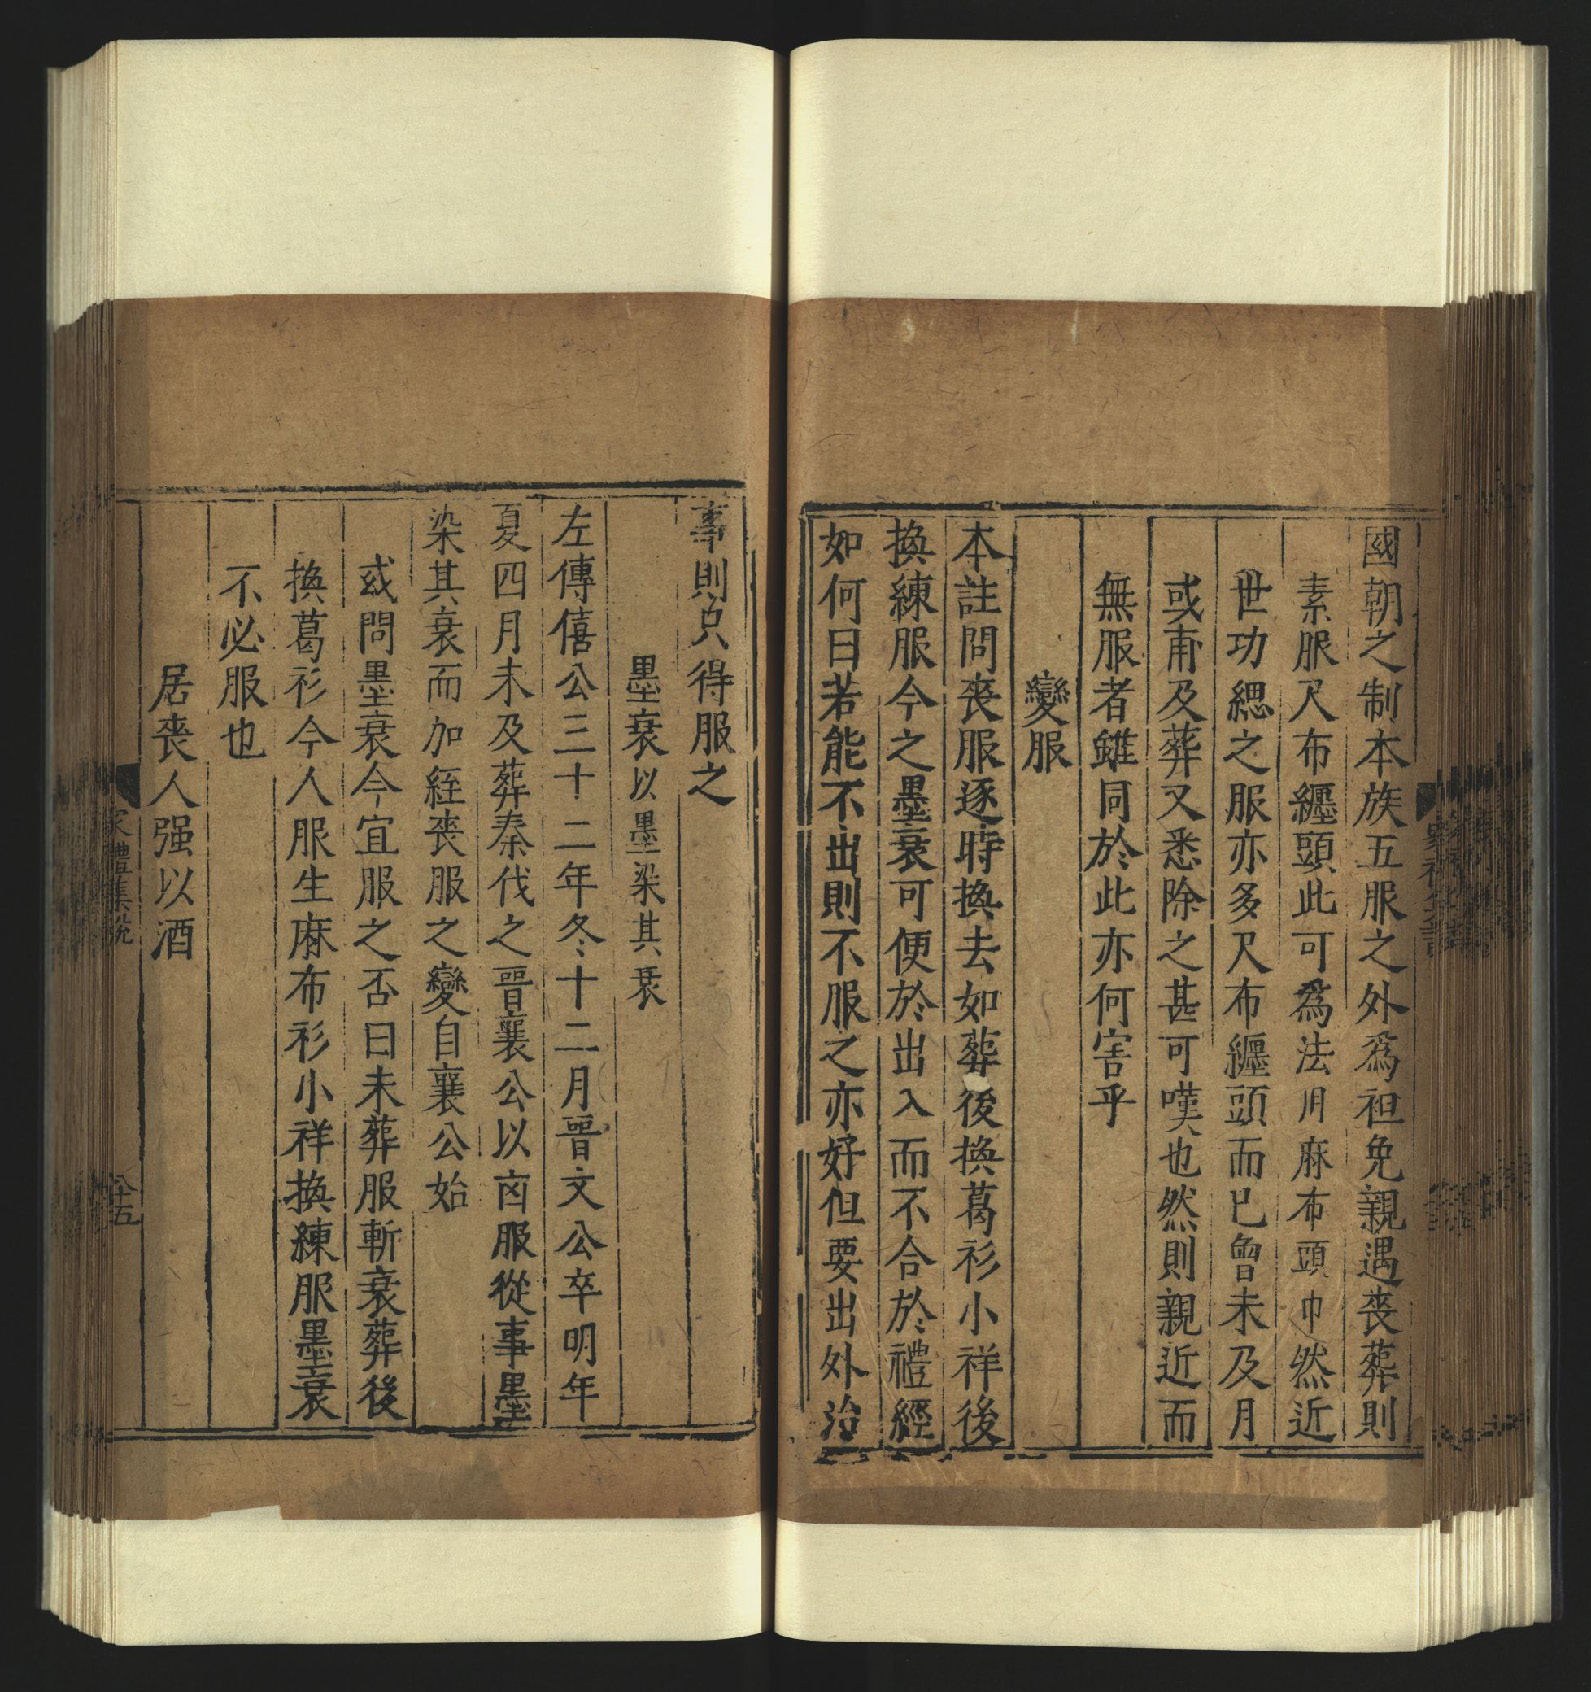 國朝之制本族五服之外爲袒免親遇丧葬則
素服尺布纏頭此可爲法用麻布頭巾然近
世功緦之服亦多尺布纏頭而已曾未及月
或甫及葬又悉除之甚可嘆也然則親近而
無服者雖同於此亦何害乎
變服
本註問丧服逐時換去如葬後換葛衫小祥後
換練服今之墨衰可便於出入而不合於禮經
如何曰若能不出則不服之亦好但要出外治
事則只得服之
墨衰以墨染其衰
左傳僖公三十二年冬十二月晋文公卒明年
夏四月未及葬秦伐之晋襄公以凶服從事墨
染其衰而加絰丧服之變自襄公始
或問墨衰今宜服之否曰未葬服斬衰葬後
換葛衫今人服生麻布衫小祥換練服墨衰
不必服也
居丧人强以酒
家禮集說
八十五